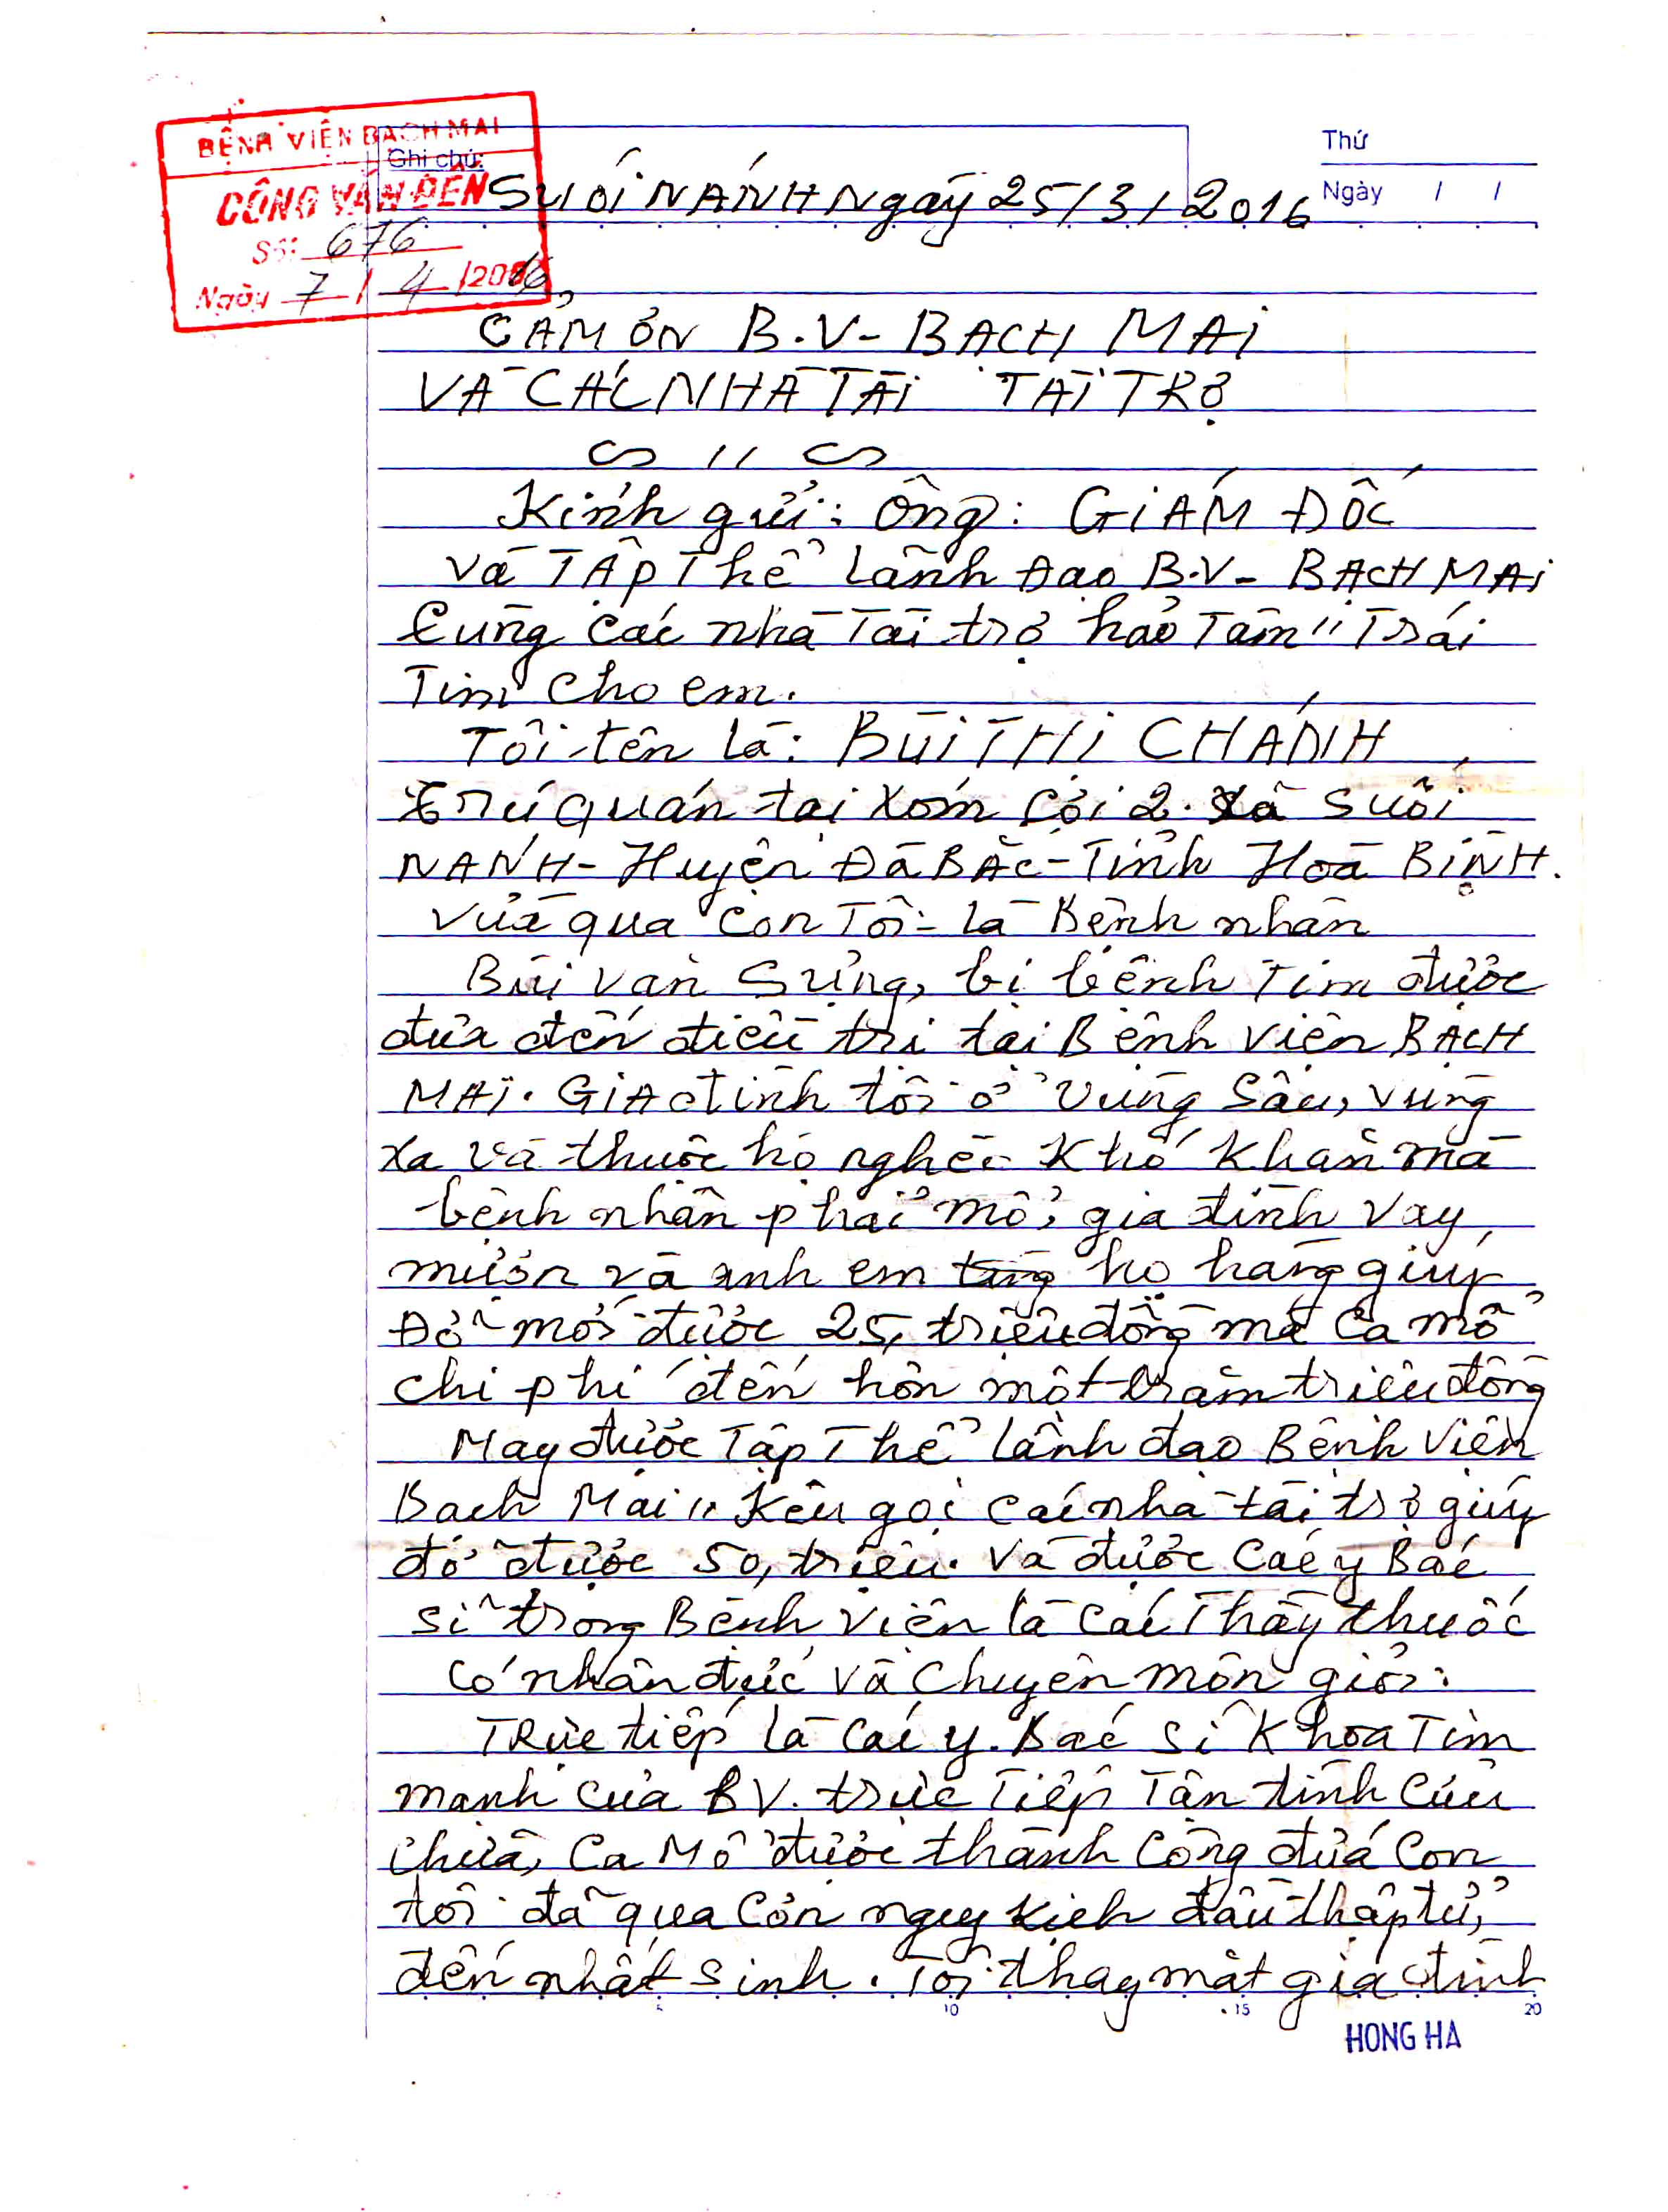 BỆNH VIỆN BẠCH MAI
Ghi chú:
CÔNG VĂN ĐẾN
Số: 676
Ngày 7 / 4 /2016
Thứ
Ngày / /
SUỐI NÁNH Ngày 25/3/2016
CẢM ƠN B.V- BẠCH MAI
VÀ CÁC NHÀ TÀI TÀI TRỢ
Kính gửi: Ông: GIÁM ĐỐC
và TẬP Thể Lãnh Đạo B.V- BẠCH MAI
Cùng các nhà Tài trợ hảo Tâm " Trái
Tim cho em.
Tôi tên là: BÙI THỊ CHÁNH
trú quán tại xóm Cơi 2. Xã Suối
NÁNH - Huyện ĐÀ BẮC - Tỉnh HOÀ BÌNH.
Vừa qua con Tôi là Bệnh nhân
Bùi Văn Sưng, bị bệnh Tim được
đưa đến điều trị tại Bệnh viện BẠCH
MAI. GIA đình tôi ở vùng Sâu, vùng
xa và thuộc hộ nghèo khó khăn mà
bệnh nhân phải mổ, gia đình vay
mượn và anh em họ hàng giúy
Đỡ mới được 25, triệu đồng mà ca mổ
chi phí đến hơn một trăm triệu đồng
May được Tập Thể Lãnh đạo Bệnh Viện
Bạch Mai " Kêu gọi các nhà tài trợ giúy
đỡ được 50, triệu. Và được Các y Bác
sĩ trong Bệnh Viện là các Thầy thuốc
có nhân đức và Chuyên môn giỏi.
TRực tiếp là các y. Bác sĩ Khoa Tim
mạnh của BV. trực Tiếp Tận tình Cứu
chữa, Ca Mổ được thành Công đứa Con
tôi đã qua Cơn nguy kịch đầu thập tử,
đến nhất sinh. Tôi thay mặt gia đình
5 10 15 20
HONG HA